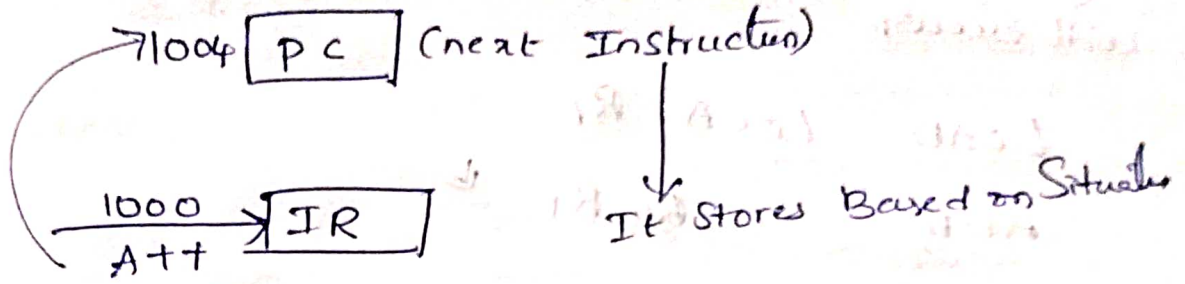 1004 PC (next Instruction)
1000 IR It Stores Based on Situation
A++